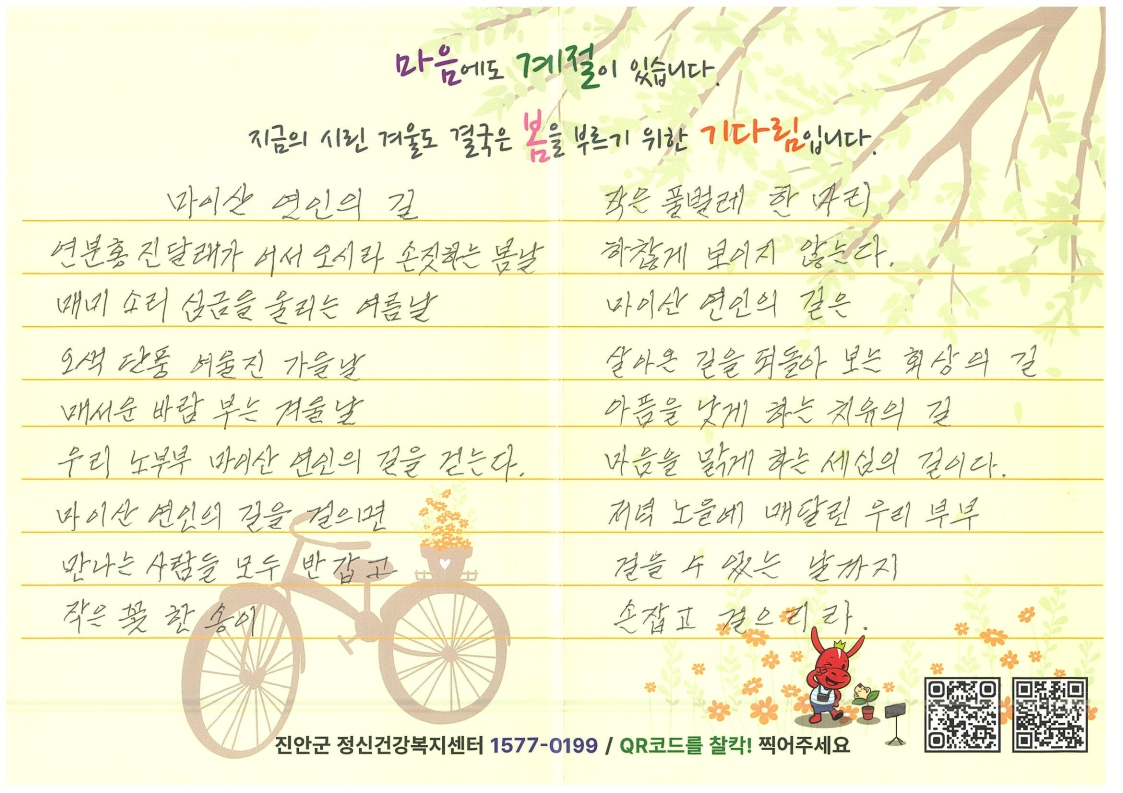 마음에도 계절이 있습니다.
지금의 시린 겨울도 결국은 봄을 부르기 위한 기다림입니다.
마이산 연인의 길
연분홍 진달래가 어서 오시라 손짓하는 봄날
매미 소리 심금을 울리는 여름날
오색 단풍 어울진 가을날
매서운 바람 부는 겨울날
우리 노부부 마이산 연인의 길을 걷는다.
마이산 연인의 길을 걸으면
만나는 사람들 모두 반갑고
작은 꽃 한 송이
작은 풀벌레 한 마리
하찮게 보이지 않는다.
마이산 연인의 길은
살아온 길을 되돌아 보는 회상의 길
아픔을 낫게 하는 치유의 길
마음을 맑게 하는 세심의 길이다.
저녁 노을에 매달린 우리 부부
걸을 수 있는 날까지
손잡고 걸으리라.
진안군 정신건강복지센터 1577-0199 / QR코드를 찰칵! 찍어주세요